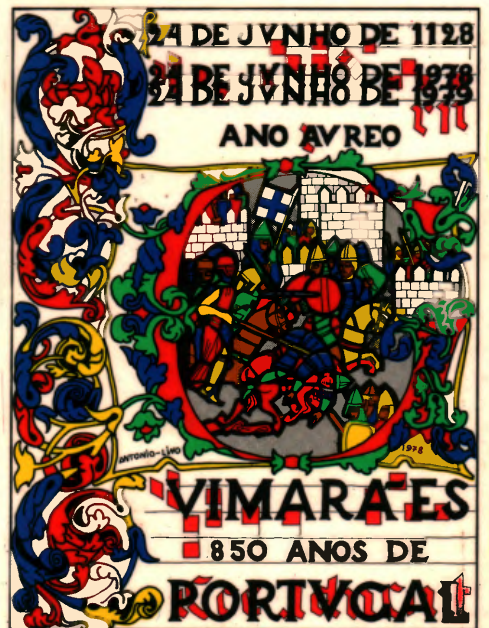 24 DE JVNHO DE 1128
24 DE JVNHO DE 1978
24 DE JVNHO DE 1979
ANO AVREO
ANTONIO-LINO
1978
VIMARAˊES
850 ANOS DE
PORTVGAL